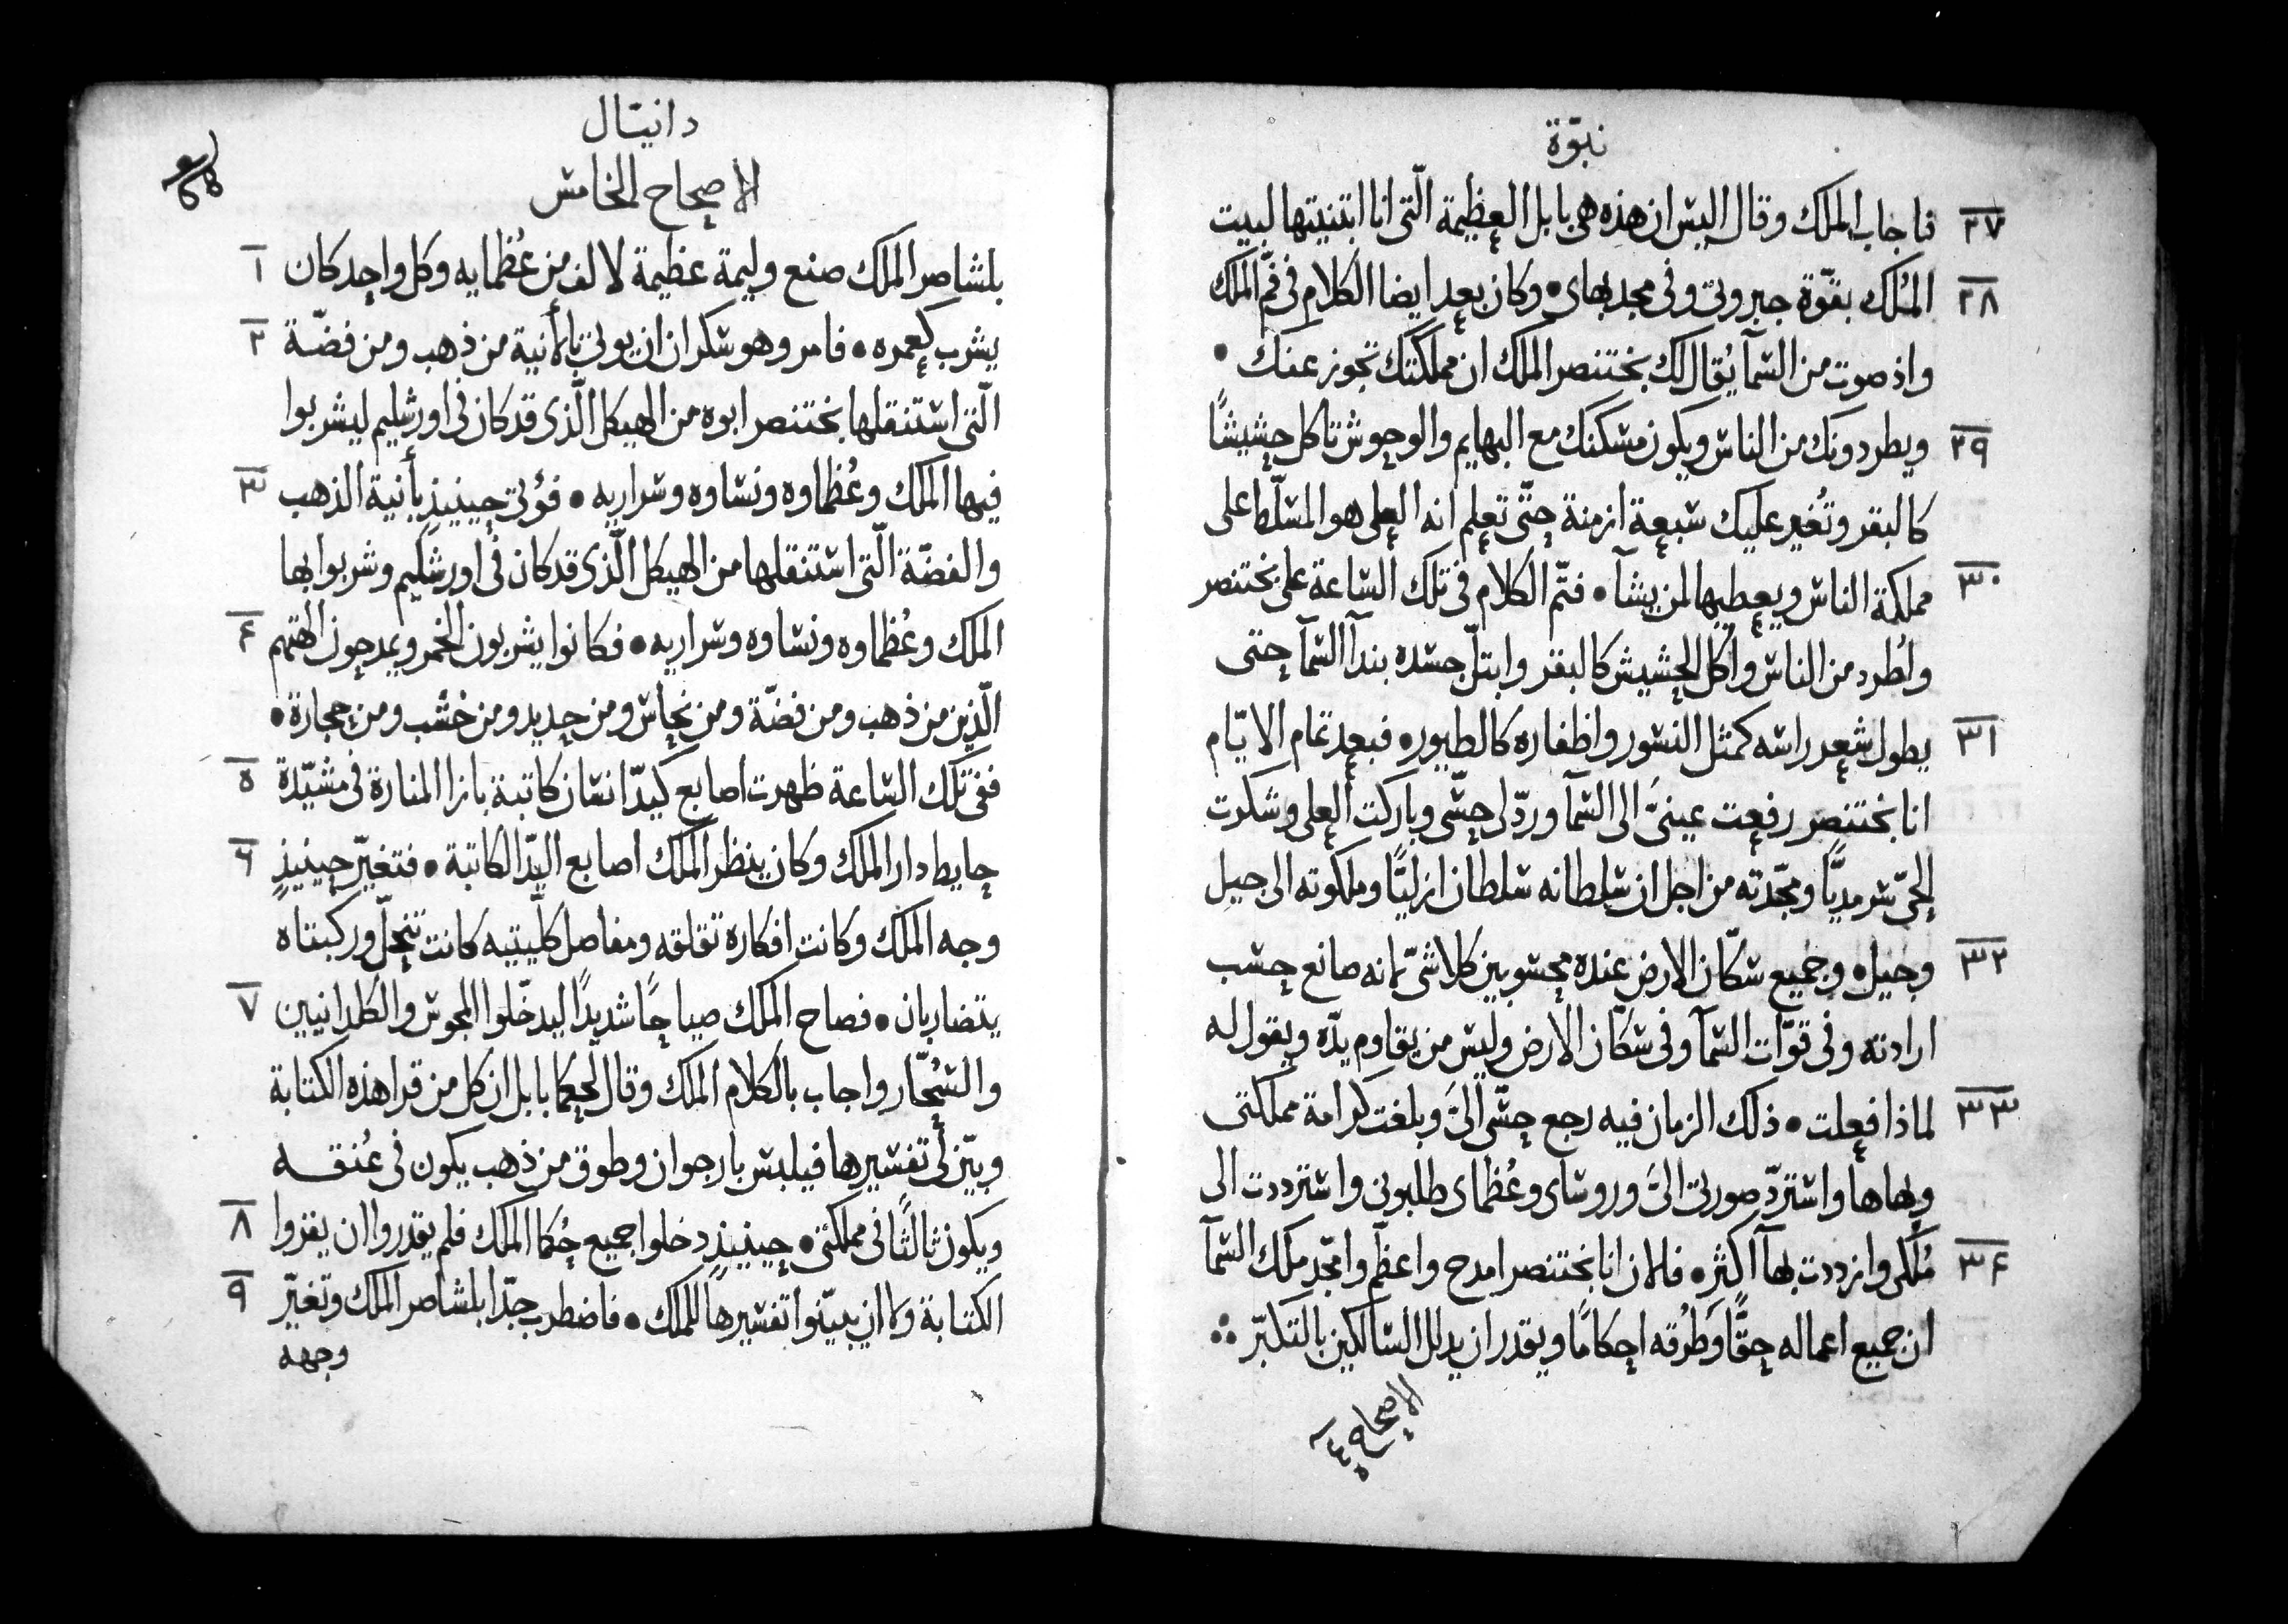 نبوّة
٢٧ فاجاب الملك وقال اليس ان هذه هى بابل العظيمة الّتى انا ابتنيتها لبيت
٢٨ المُلك بقوّة جبروتى وفى مجد بهاى • وكان بعد ايضا الكلام فى فم الملك
واذ صوت من السّمآ يُقال لك بختنصر الملك ان مملكتك تجوز عنك •
٢٩ ويطردونك من الناس ويكون مسكنك مع البهايم والوحوش تاكل حشيشًا
كالبقر وتُغير عليك سبعة ازمنة حتّى تعلم انه العلى هو المسلّط على
٣٠ مملكة الناس ويعطيها لمن يشآ • فتمّ الكلام فى تلك السّاعة على بختنصر
واُطرد من الناس واكل الحشيش كالبقر وابتلّ جسده بندآ السّمآ حتى
٣١ يطول شعر راسه كمثل النسور واظفاره كالطيور • فبعد تمام الايّام
انا بختنصر رفعت عينىَّ الى السّمآ وردّ لى حسّى وباركت العلى وشكرت
الحىّ سرمديًّا ومجّدته من اجل ان سلطانه سلطان ازليًّا وملكوته الى جيلِ
٣٢ وجيل • وجميع سكّان الارض عنده محسوبين كلاشىّ لانه صانع حسب
ارادته وفى قوّات السّمآ وفى سكّان الارض وليس من يقاوم يدّه ويقول له
٣٣ لماذا فعلت • ذلك الزمان فيه رجع حسّى الىَّ وبلغت كرامة مملكتى
وبهاها واستردّ صورتى الىَّ وروساى وعُظماى طلبونى واسترددت الى
٣٤ مُلكى وازددت بهآ اكثر • فالان انا بختنصر امدح واعظّم وامجّد ملك السّمآ
ان جميع اعماله حقًّا وطُرقه احكامًا ويقدر ان يذلل السّالكين بالتكبّر ∴
دانيّال
الاصحاح الخامس
١ بلشاصر الملك صنع وليمة عظيمة لالف من عُظمايه وكل واحد كان
٢ يشرب كعمره • فامر وهو سكران ان يوتى بالأنية من ذهب ومن فضّة
الّتى استنقلها بختنصر ابوه من الهيكل الّذى قد كان فى اورشليم ليشربوا
٣ فيها الملك وعُظماوه ونساوه وسراريه • فؤتى حينيذٍ بأنية الذهب
والفضّة الّتى استنقلها من الهيكل الّذى قد كان فى اورشليم وشربوا بها
٤ الملك وعُظماوه ونساوه وسراريه • فكانوا يشربون الخمر ويمدحون الهتهم
الّذين من ذهب ومن فضّة ومن نحاس ومن حديد ومن خشب ومن حجارة •
٥ ففى تلك السّاعة ظهرت اصابع كيدّ انسان كاتبة بازا المنارة فى مشيّدة
٦ حايط دار الملك وكان ينظر الملك اصابع اليدّ الكاتبة • فتغيّر حينيذٍ
وجه الملك وكانت افكاره تقلقه ومفاصل كليتيه كانت تنحلّ وركبتاه
٧ يتضاربان • فصاح الملك صياحًا شديدًا ليدخّلوا المجوس والكلدانيين
والسُحّار واجاب بالكلام الملك وقال لحكما بابل ان كل من قرا هذه الكتابة
وبيّن لى تفسيرها فيلبس بارجوان وطوق من ذهب يكون فى عُنقه
٨ ويكون ثالثًا فى مملكتى • حينيذٍ دخلوا جميع حُكما الملك فلم يقدروا ان يقروا
٩ الكتابة ولا ان يبيّنوا تفسيرها للملك • فاضطرب جدّا بلشاصر الملك وتغيّر
وجهه